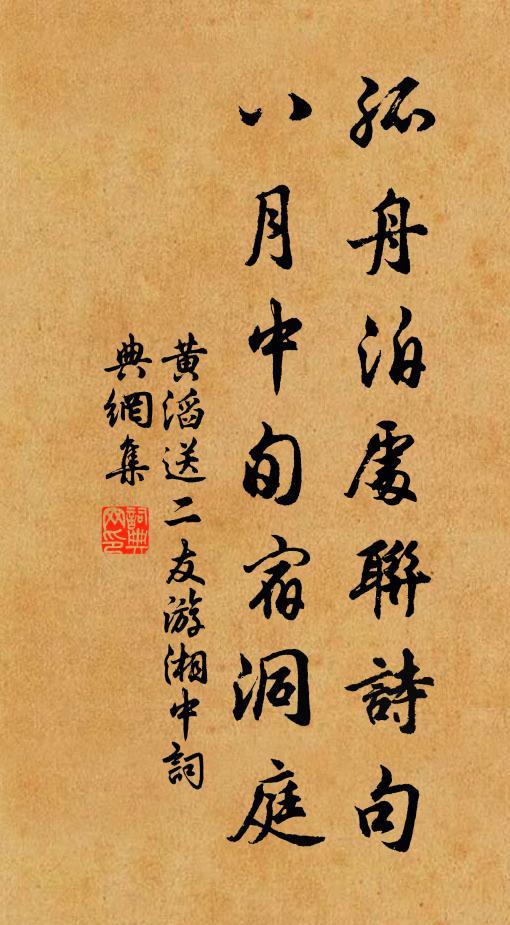 孤舟泊處聯詩句
八月中旬宿洞庭
黄滔送二友游湘中詞
典網集
詞典
網印